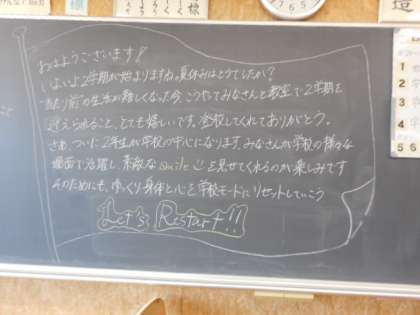 様
おはようございます!
いよいよ2学期が始まりますね。夏休みはどうでしたか?
当たり前の生活が難しくなった今、こうやってみなさんと教室で2学期を
迎えられること、とても嬉しいです。登校してくれてありがとう。
さあ、ついに2年生が学校の中心になります。みなさんが学校の様々な
場面で活躍し、素敵なsmileを見せてくれるのが楽しみです
そのためにも、ゆっくり身体と心を学校モードにリセットしていこう
Let's Restart!!
1
2
3
4
5 6